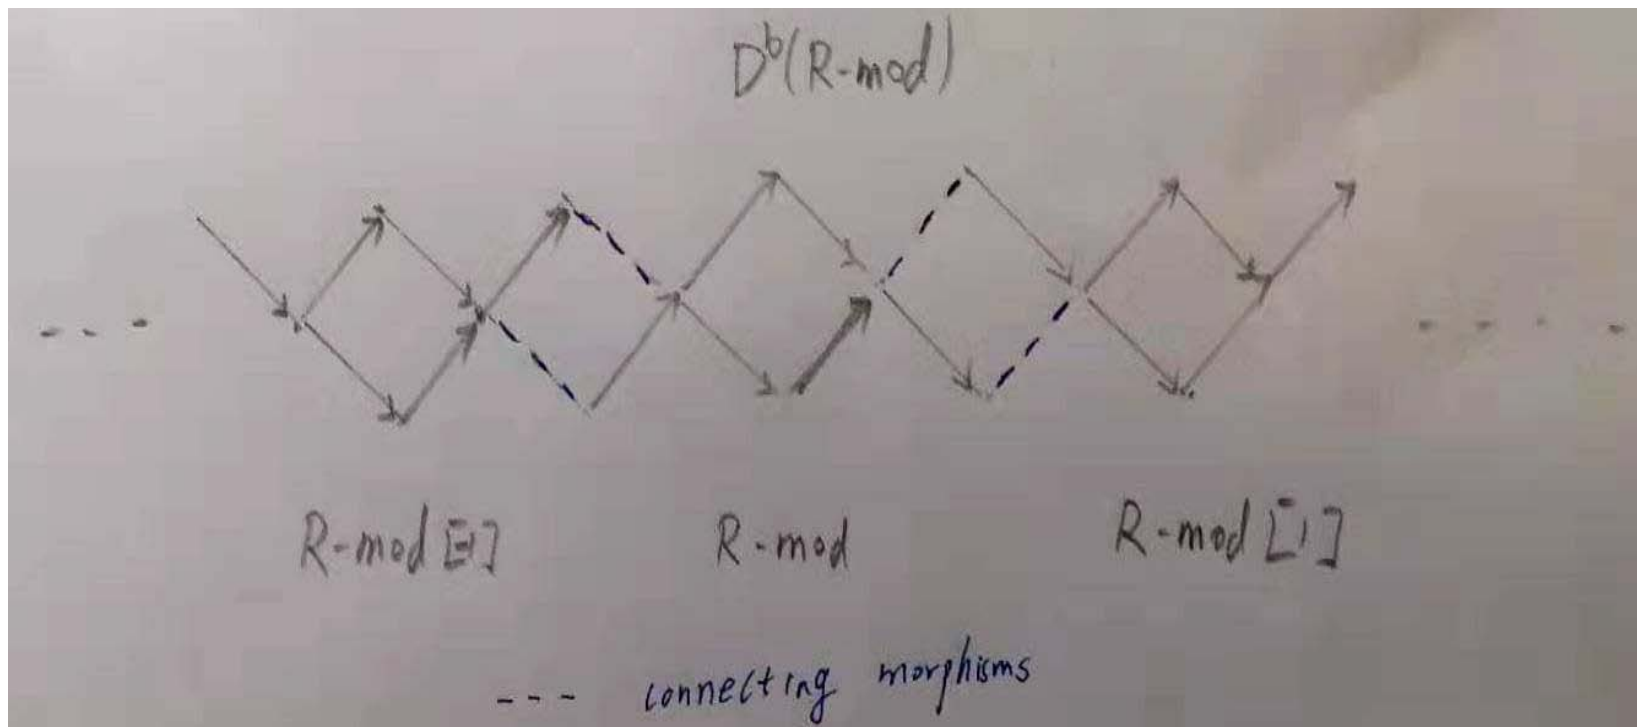 D^b(R-mod)
R-mod [-1] R-mod R-mod [1]
--- connecting morphisms